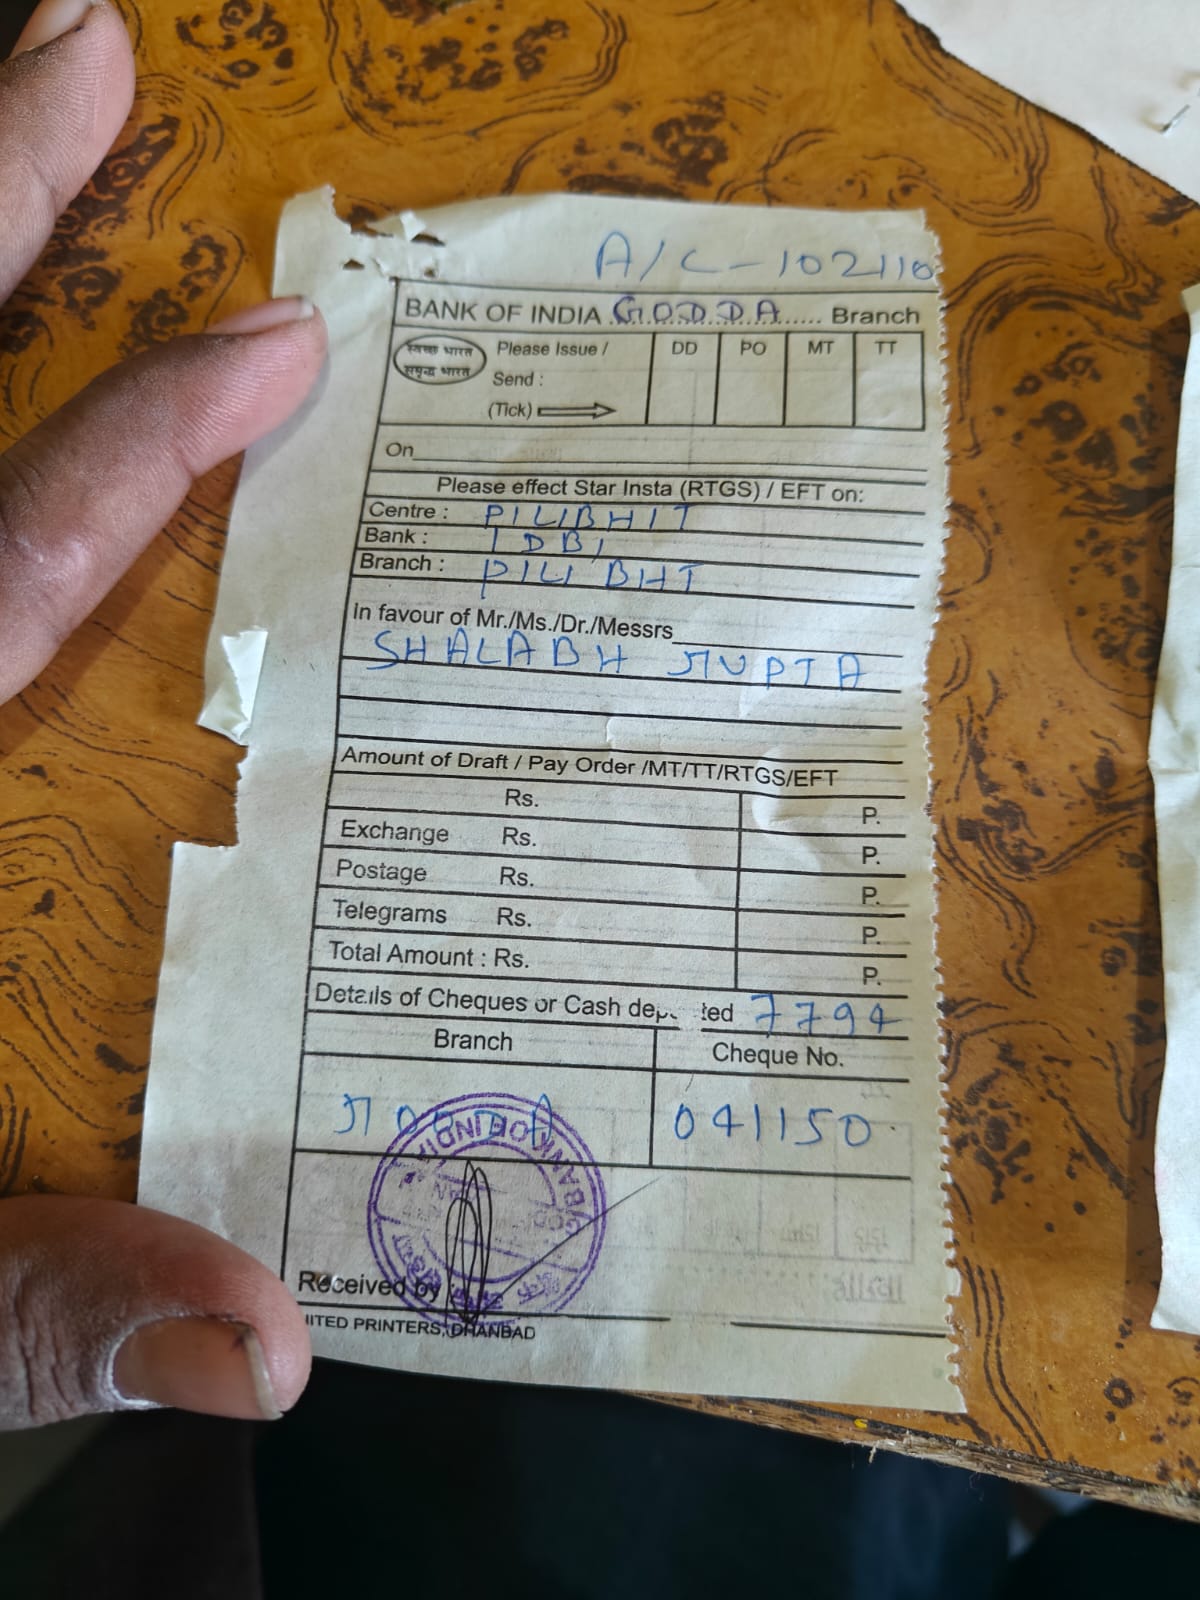 A/C-102110
BANK OF INDIA GODDA Branch
स्वच्छ भारत
समृद्ध भारत
Please Issue /
Send :
(Tick)
DD PO MT TT
On
Please effect Star Insta (RTGS) / EFT on:
Centre : PILIBHIT
Bank : IDBI
Branch : PILIBHT
In favour of Mr./Ms./Dr./Messrs
SHALABH GUPTA
Amount of Draft / Pay Order /MT/TT/RTGS/EFT
Rs. P.
Exchange Rs. P.
Postage Rs. P.
Telegrams Rs. P.
Total Amount : Rs. P.
Details of Cheques or Cash dep ted 7794
Branch Cheque No.
GODDA 041150
BANK OF INDIA
Received by
ITED PRINTERS, DHANBAD